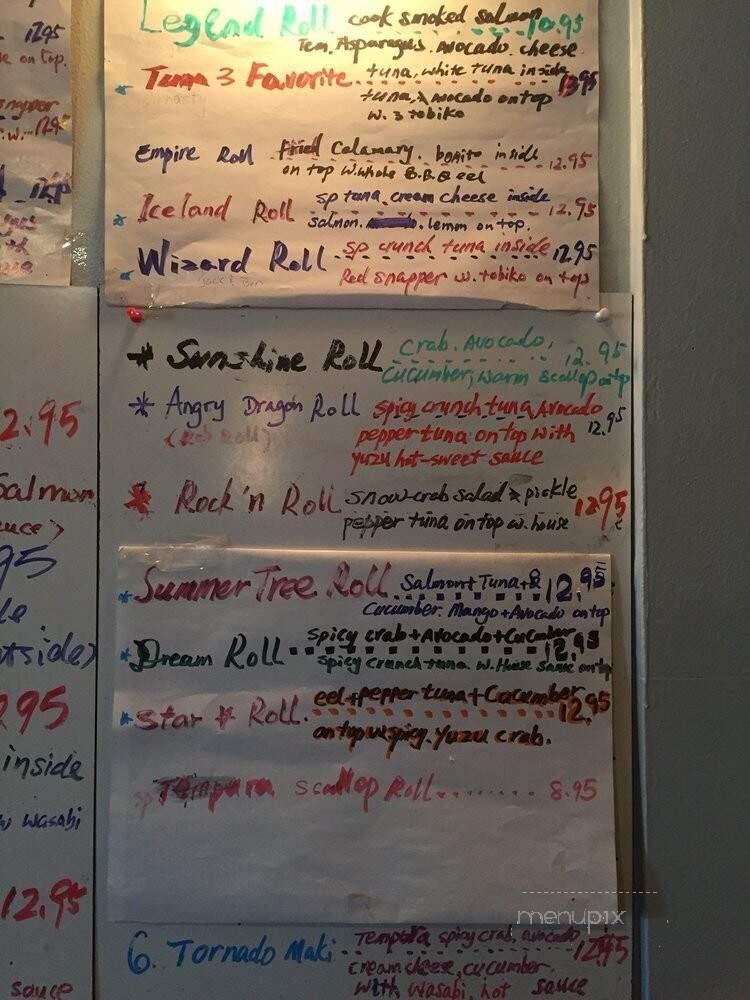 Legend Roll cook smoked salmon 10.95
Tem. Asparagus. Avocado cheese
* Tuna 3 Favorite tuna, white tuna inside 13.95
tuna, & Avocado on top
w. 3 tobiko
Empire Roll fried Calamary. bonito inside 12.95
on top w. whole B.B.Q eel
* Iceland Roll sp tuna. cream cheese inside 12.95
salmon. lemm on top.
* Wizard Roll sp crunch tuna inside 12.95
Red snapper w. tobiko on top
* Sunshine Roll Crab. Avocado, 12.95
cucumber, warm scallop on top
* Angry Dragon Roll spicy crunch tuna, Avocado 12.95
pepper tuna on top with
yuzu hot-sweet sauce
* Rock'n Roll snow crab salad & pickle 12.95
pepper tuna on top w. house
* Summer Tree Roll Salmon + Tuna + & 12.95
Cucumber. Mango + Avocado on top
* Dream Roll spicy crab + Avocado + Cucumber 12.95
spicy crunch tuna w. House sauce on top
* Star * Roll. eel + pepper tuna + Cucumber 12.95
on top w spicy. yuzu crab.
Tempura scallop Roll........ 8.95
6. Tornado Maki Tempura spicy crab, avocado 12.95
cream cheese, cucumber
with, wasabi, hot sauce
12.95
2.95
Salmon
95
tside)
295
inside
w wasabi
12.95
sauce
menupix